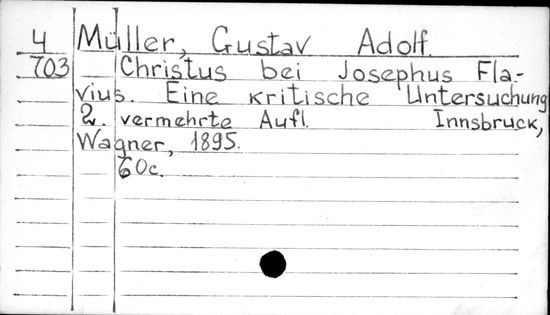 4 Müller, Gustav Adolf.
703 Christus bei Josephus Fla-
vius. Eine kritische Untersuchung
2. vermehrte Aufl. Innsbruck,
Wagner, 1895.
60c.